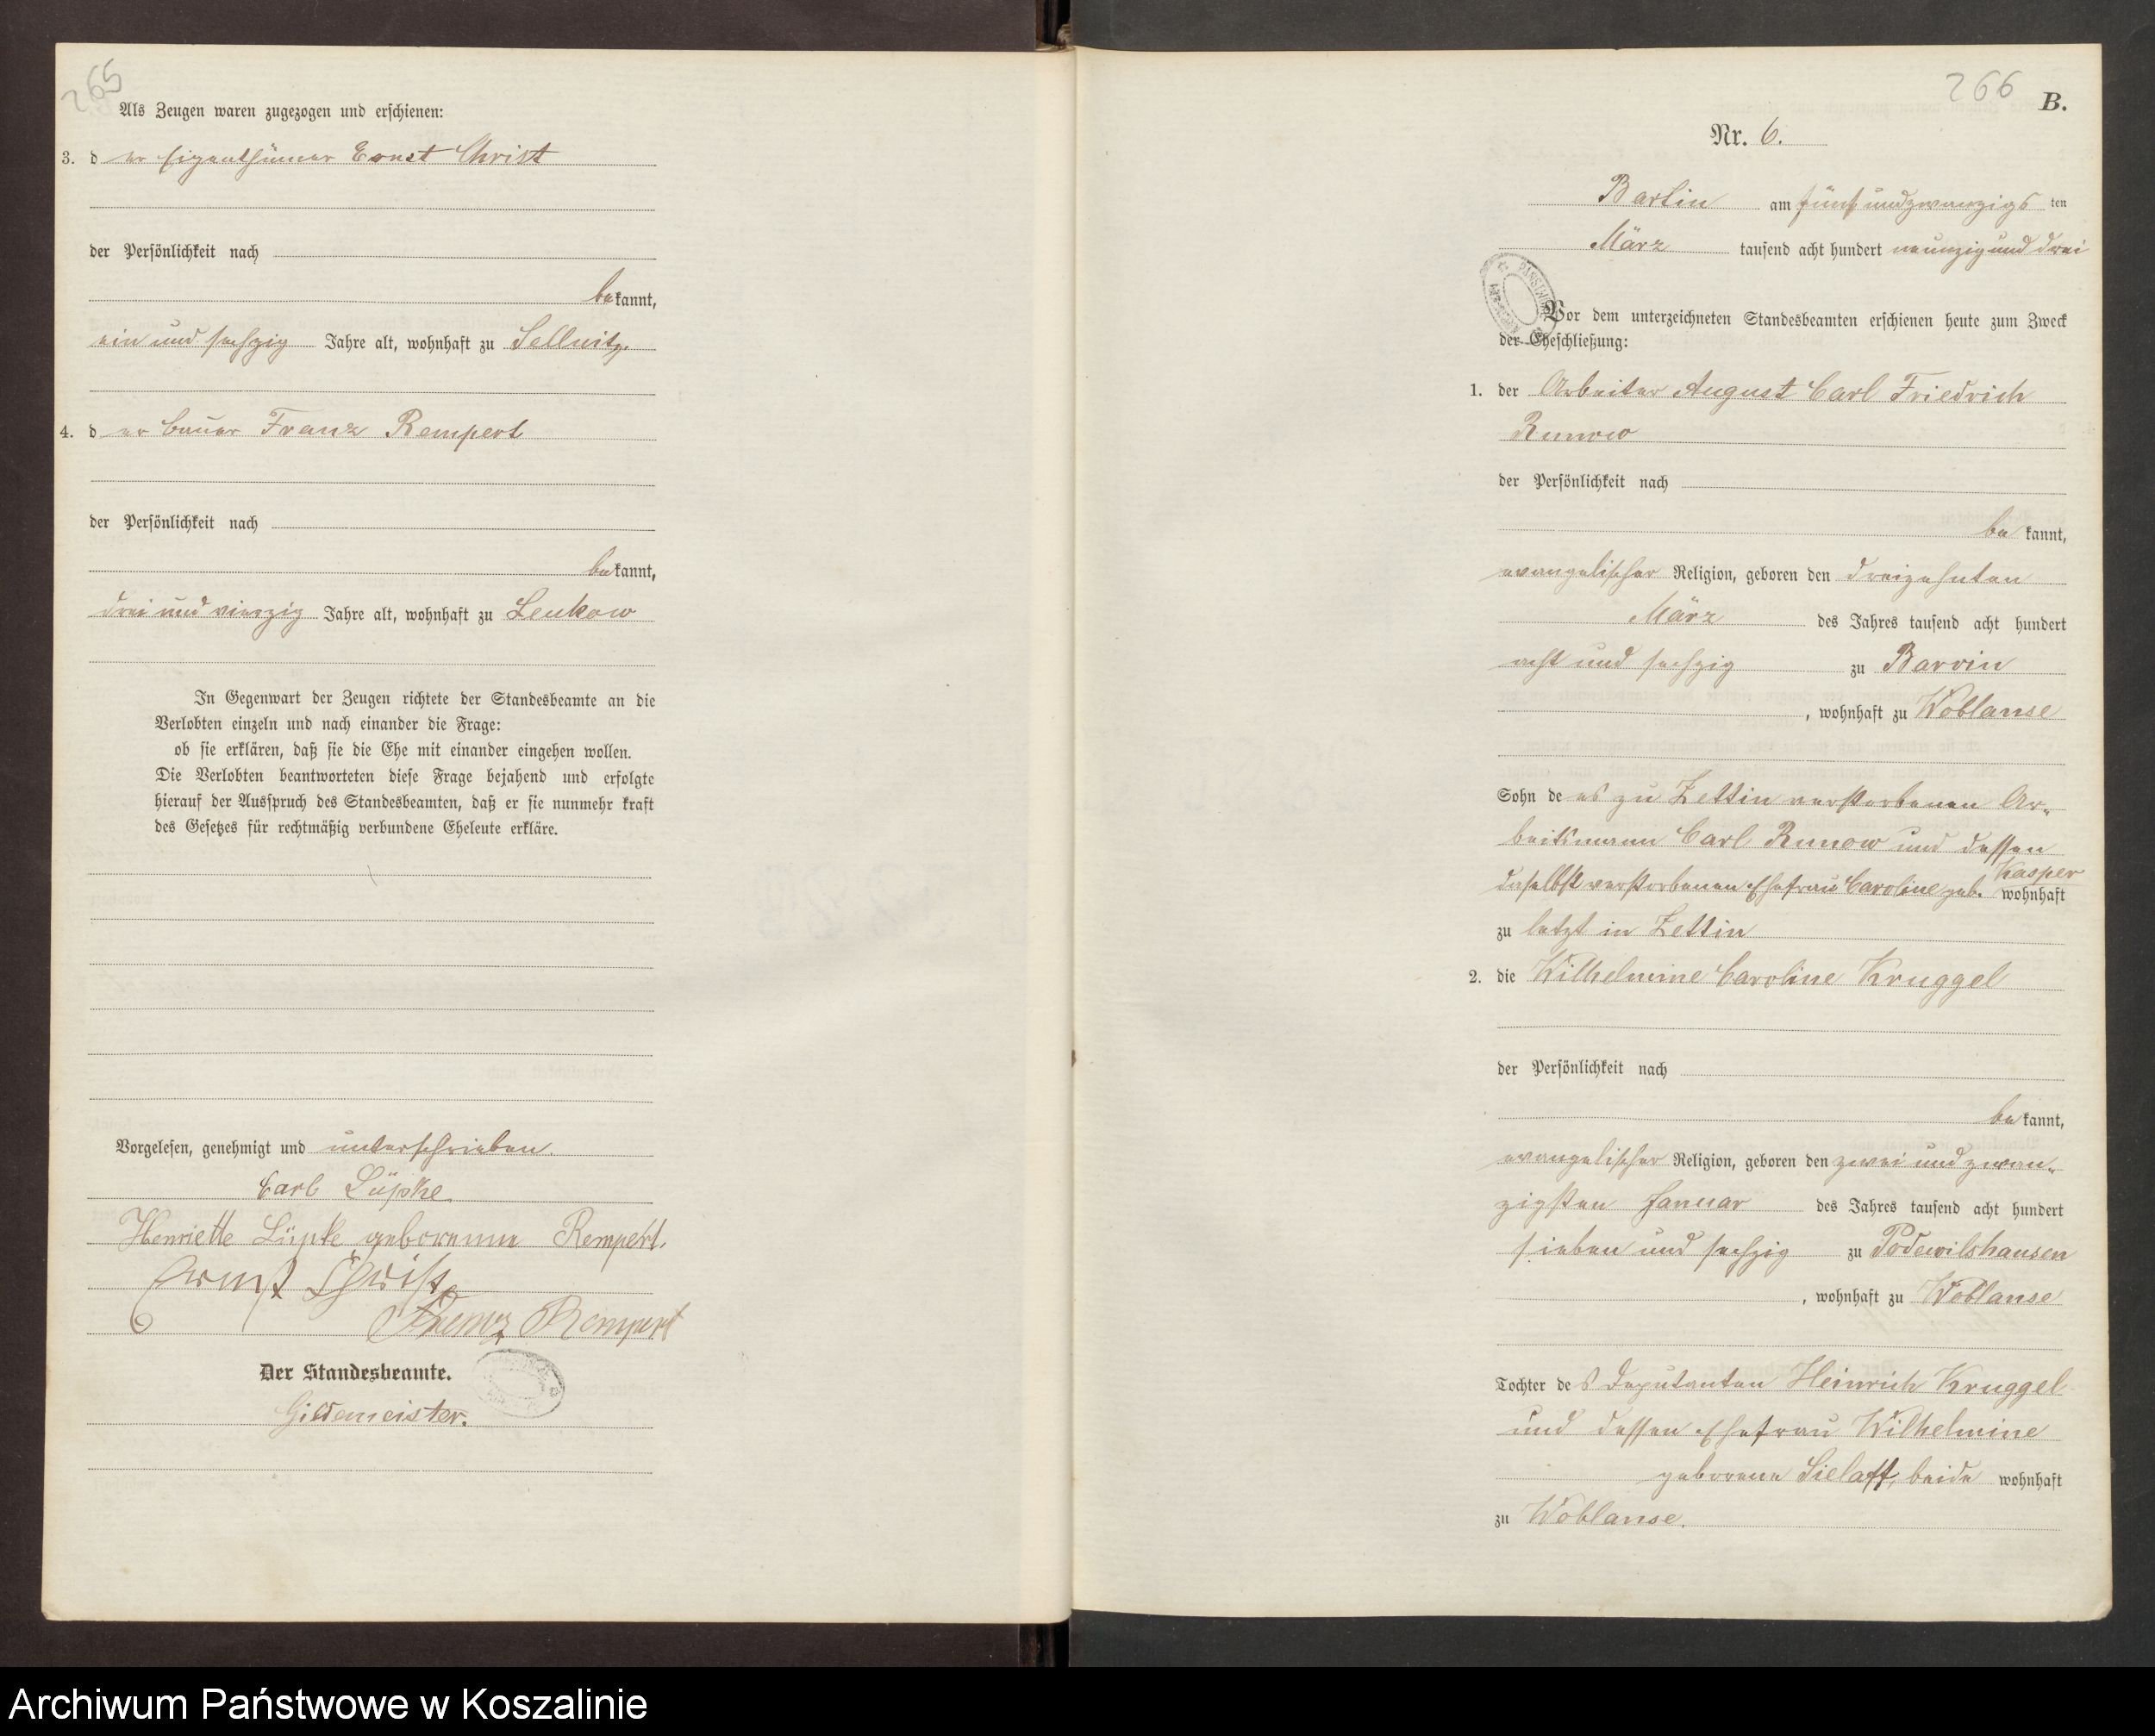 265
Als Zeugen waren zugezogen und erschienen:
3. d er Eigenthümer Ernst Christ
der Persönlichkeit nach
bekannt,
ein und sechzig Jahre alt, wohnhaft zu Sellnitz.
4. d er Bauer Franz Rempert
der Persönlichkeit nach
bekannt,
drei und vierzig Jahre alt, wohnhaft zu Leukow
In Gegenwart der Zeugen richtete der Standesbeamte an die
Verlobten einzeln und nach einander die Frage:
ob sie erklären, daß sie die Ehe mit einander eingehen wollen.
Die Verlobten beantworteten diese Frage bejahend und erfolgte
hierauf der Ausspruch des Standesbeamten, daß er sie nunmehr kraft
des Gesetzes für rechtmäßig verbundene Eheleute erkläre.
Vorgelesen, genehmigt und unterschrieben.
Carl Lüpke
Henriette Lüpke geborenne Rempert.
Ernst Christ
Franz Rempert
Der Standesbeamte.
Gildemeister.
266
B.
Nr. 6.
Bartin am fünfundzwanzigs ten
März tausend acht hundert neunzig und drei
Vor dem unterzeichneten Standesbeamten erschienen heute zum Zweck
der Eheschließung:
1. der Arbeiter August Carl Friedrich
Runow
der Persönlichkeit nach
be kannt,
evangelischer Religion, geboren den dreizehnten
März des Jahres tausend acht hundert
acht und sechzig zu Barvin
, wohnhaft zu Woblanse
Sohn de es zu Zettin verstorbenen Ar-
beitsmann Carl Runow und dessen
daselbst verstorbenen Ehefrau Caroline geb. Kasper wohnhaft
zu letzt in Zettin
2. die Wilhelmine Caroline Kruggel
der Persönlichkeit nach
be kannt,
evangelischer Religion, geboren den zwei und zwan-
zigsten Januar des Jahres tausend acht hundert
sieben und sechzig zu Podewilshausen
, wohnhaft zu Woblanse
Tochter de s Deputanten Heinrich Kruggel
und dessen Ehefrau Wilhelmine
geborene Sielaff, beide wohnhaft
zu Woblanse.
Archiwum Państwowe w Koszalinie